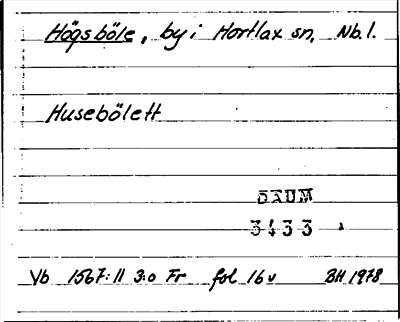 Högsböle, by i Hortlax sn, Nb.l.
Husebölett
DAUM
3433
Vb 1567:11 3:o Fr fol 16 v BH 1978